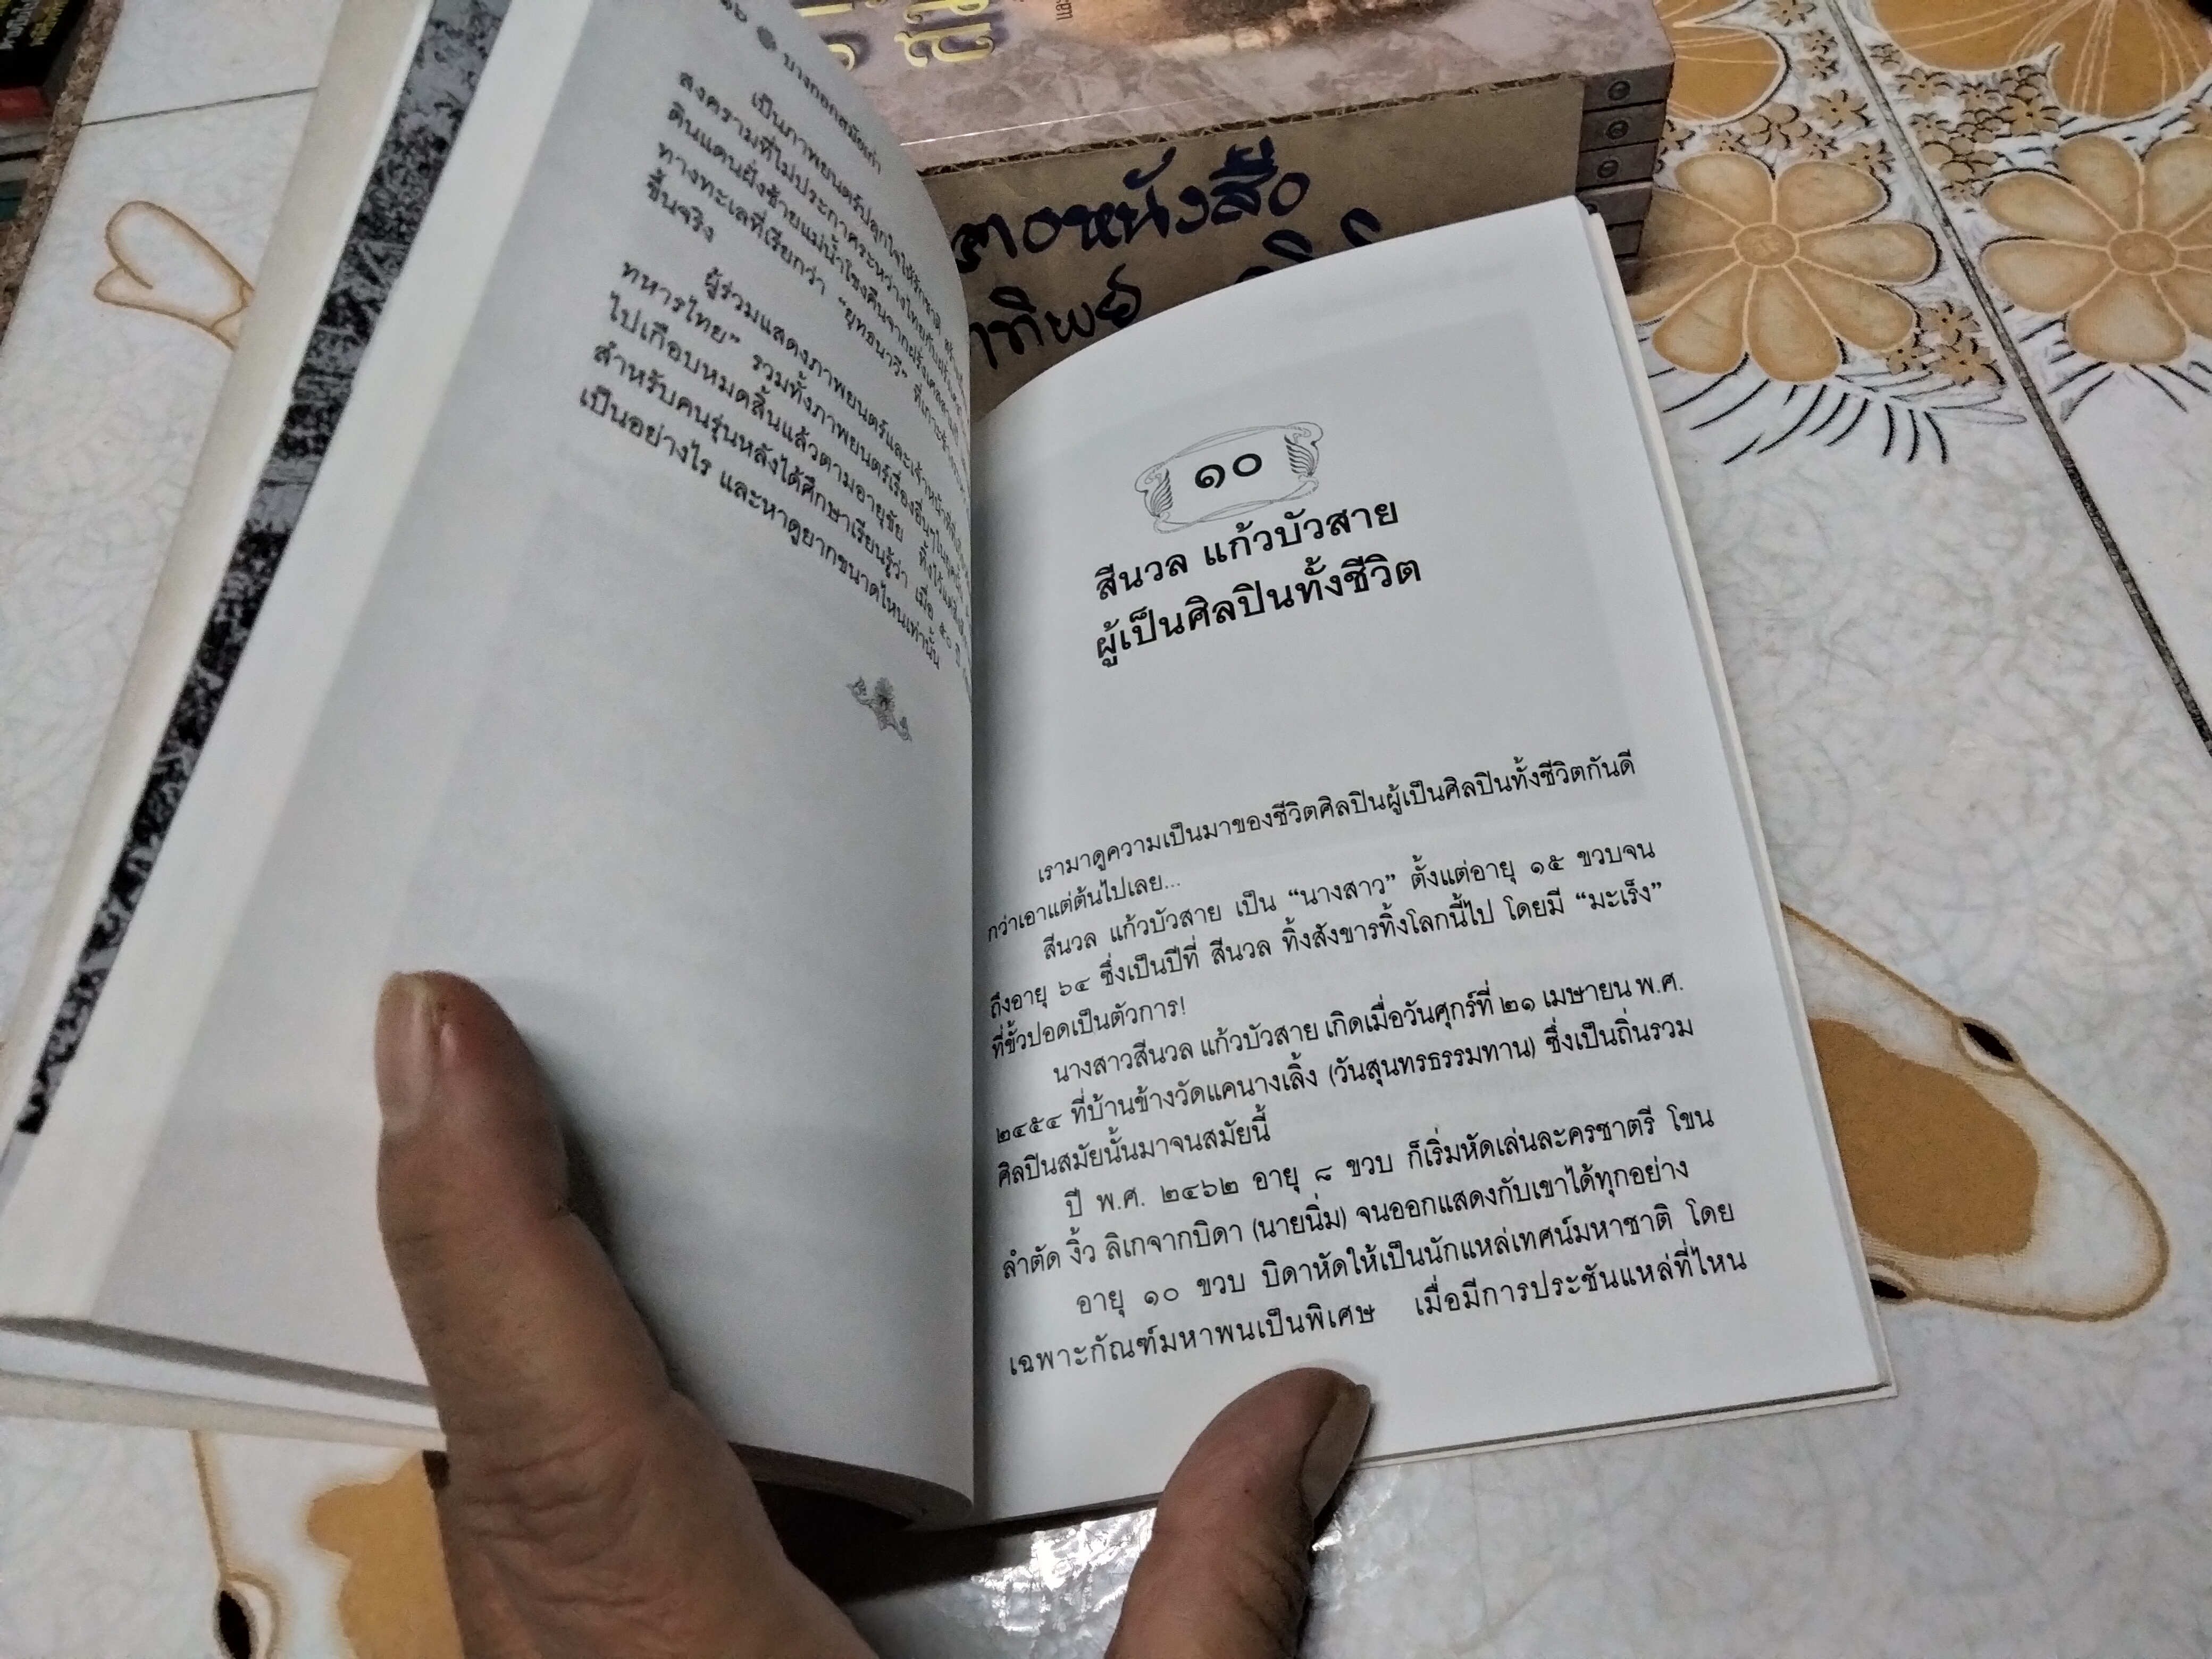 บางกอกสมัยเก่า
เป็นภาพยนตร์ปลุกใจให้รักชาติ
สงครามที่ไม่ประกาศระหว่างไทยกับฝรั่งเศส
ดินแดนฝั่งซ้ายแม่น้ำโขงคืนจากฝรั่งเศส
ทางทะเลที่เรียกว่า "ยุทธนาวี" ที่เกาะช้าง
ขึ้นจริง
ผู้ร่วมแสดงภาพยนตร์และเจ้าหน้าที่
ทหารไทย" รวมทั้งภาพยนตร์เรื่องอื่นๆ
ไปเกือบหมดสิ้นแล้วตามอายุขัย ทิ้งไว้แต่
สำหรับคนรุ่นหลังได้ศึกษาเรียนรู้ว่า เมื่อ ๕๐ ปี
เป็นอย่างไร และหาดูยากขนาดไหนเท่านั้น
๑๐
สีนวล แก้วบัวสาย
ผู้เป็นศิลปินทั้งชีวิต
เรามาดูความเป็นมาของชีวิตศิลปินผู้เป็นศิลปินทั้งชีวิตกันดี
กว่าเอาแต่ต้นไปเลย...
สีนวล แก้วบัวสาย เป็น "นางสาว" ตั้งแต่อายุ ๑๕ ขวบจน
ถึงอายุ ๖๔ ซึ่งเป็นปีที่ สีนวล ทิ้งสังขารทิ้งโลกนี้ไป โดยมี "มะเร็ง"
ที่ขั้วปอดเป็นตัวการ!
นางสาวสีนวล แก้วบัวสาย เกิดเมื่อวันศุกร์ที่ ๒๑ เมษายน พ.ศ.
๒๔๕๔ ที่บ้านข้างวัดแคนางเลิ้ง (วันสุนทรธรรมทาน) ซึ่งเป็นถิ่นรวม
ศิลปินสมัยนั้นมาจนสมัยนี้
ปี พ.ศ. ๒๔๖๒ อายุ ๘ ขวบ ก็เริ่มหัดเล่นละครชาตรี โขน
ลำตัด งิ้ว ลิเกจากบิดา (นายนิ่ม) จนออกแสดงกับเขาได้ทุกอย่าง
อายุ ๑๐ ขวบ บิดาหัดให้เป็นนักแหล่เทศน์มหาชาติ โดย
เฉพาะกัณฑ์มหาพนเป็นพิเศษ เมื่อมีการประชันแหล่ที่ไหน